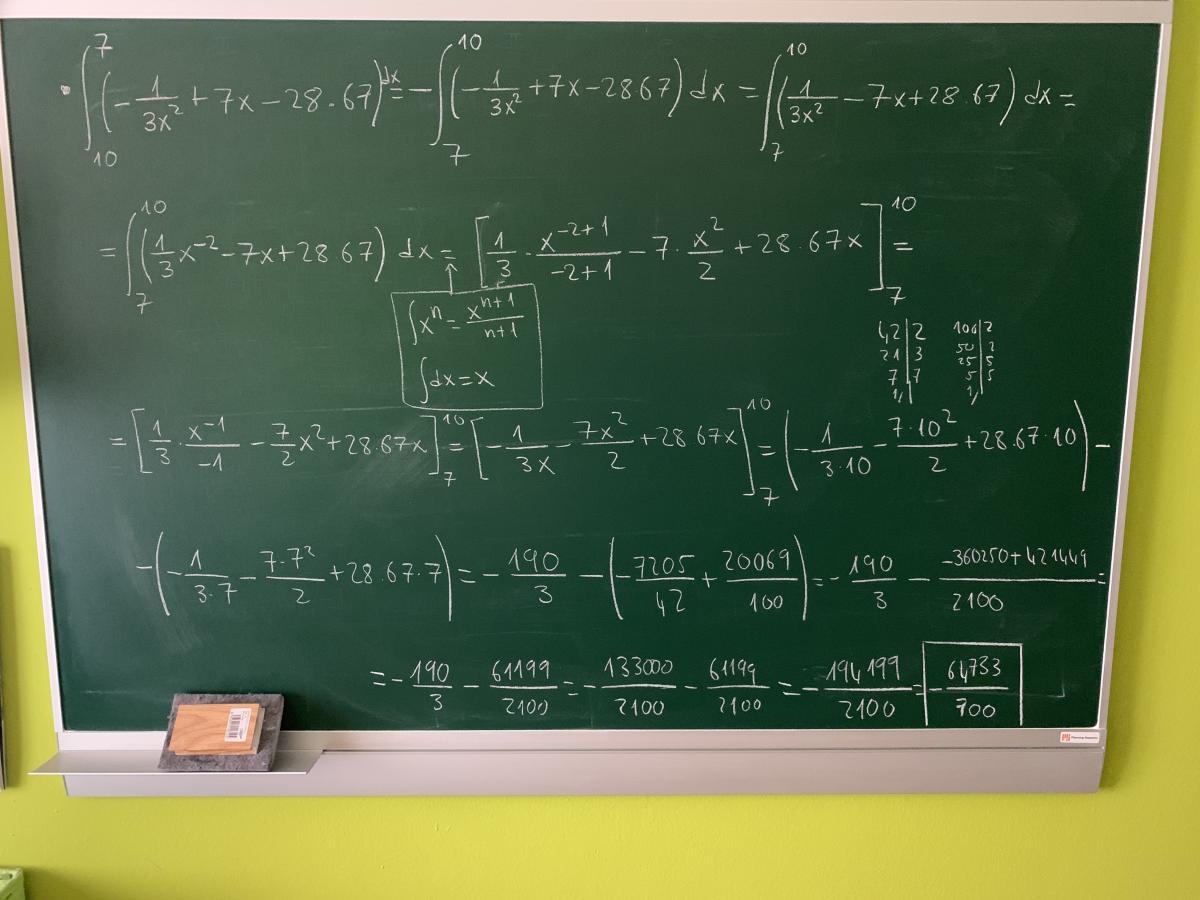 ∫₁₀⁷ (-1/3x² + 7x - 28.67)dx = -∫₇¹⁰ (-1/3x² + 7x - 28 67) dx = ∫₇¹⁰ (1/3x² - 7x + 28.67) dx =
= ∫₇¹⁰ (1/3 x⁻² - 7x + 28 67) dx = [1/3 · x⁻²⁺¹/-2+1 - 7 · x²/2 + 28.67x]₇¹⁰ =
∫xⁿ = xⁿ⁺¹/n+1
∫dx = x
42|2 100|2
21|3 50|2
7|7 25|5
1| 5|5
1|
= [1/3 · x⁻¹/-1 - 7/2 x² + 28.67x]₇¹⁰ = [-1/3x - 7x²/2 + 28 67x]₇¹⁰ = (-1/3·10 - 7·10²/2 + 28.67·10) -
-(-1/3·7 - 7·7²/2 + 28.67·7) = -190/3 - (-7205/42 + 20069/100) = -190/3 - -360250+421449/2100 =
= -190/3 - 61199/2100 = -133000/2100 - 61199/2100 = -194199/2100 = -64733/700